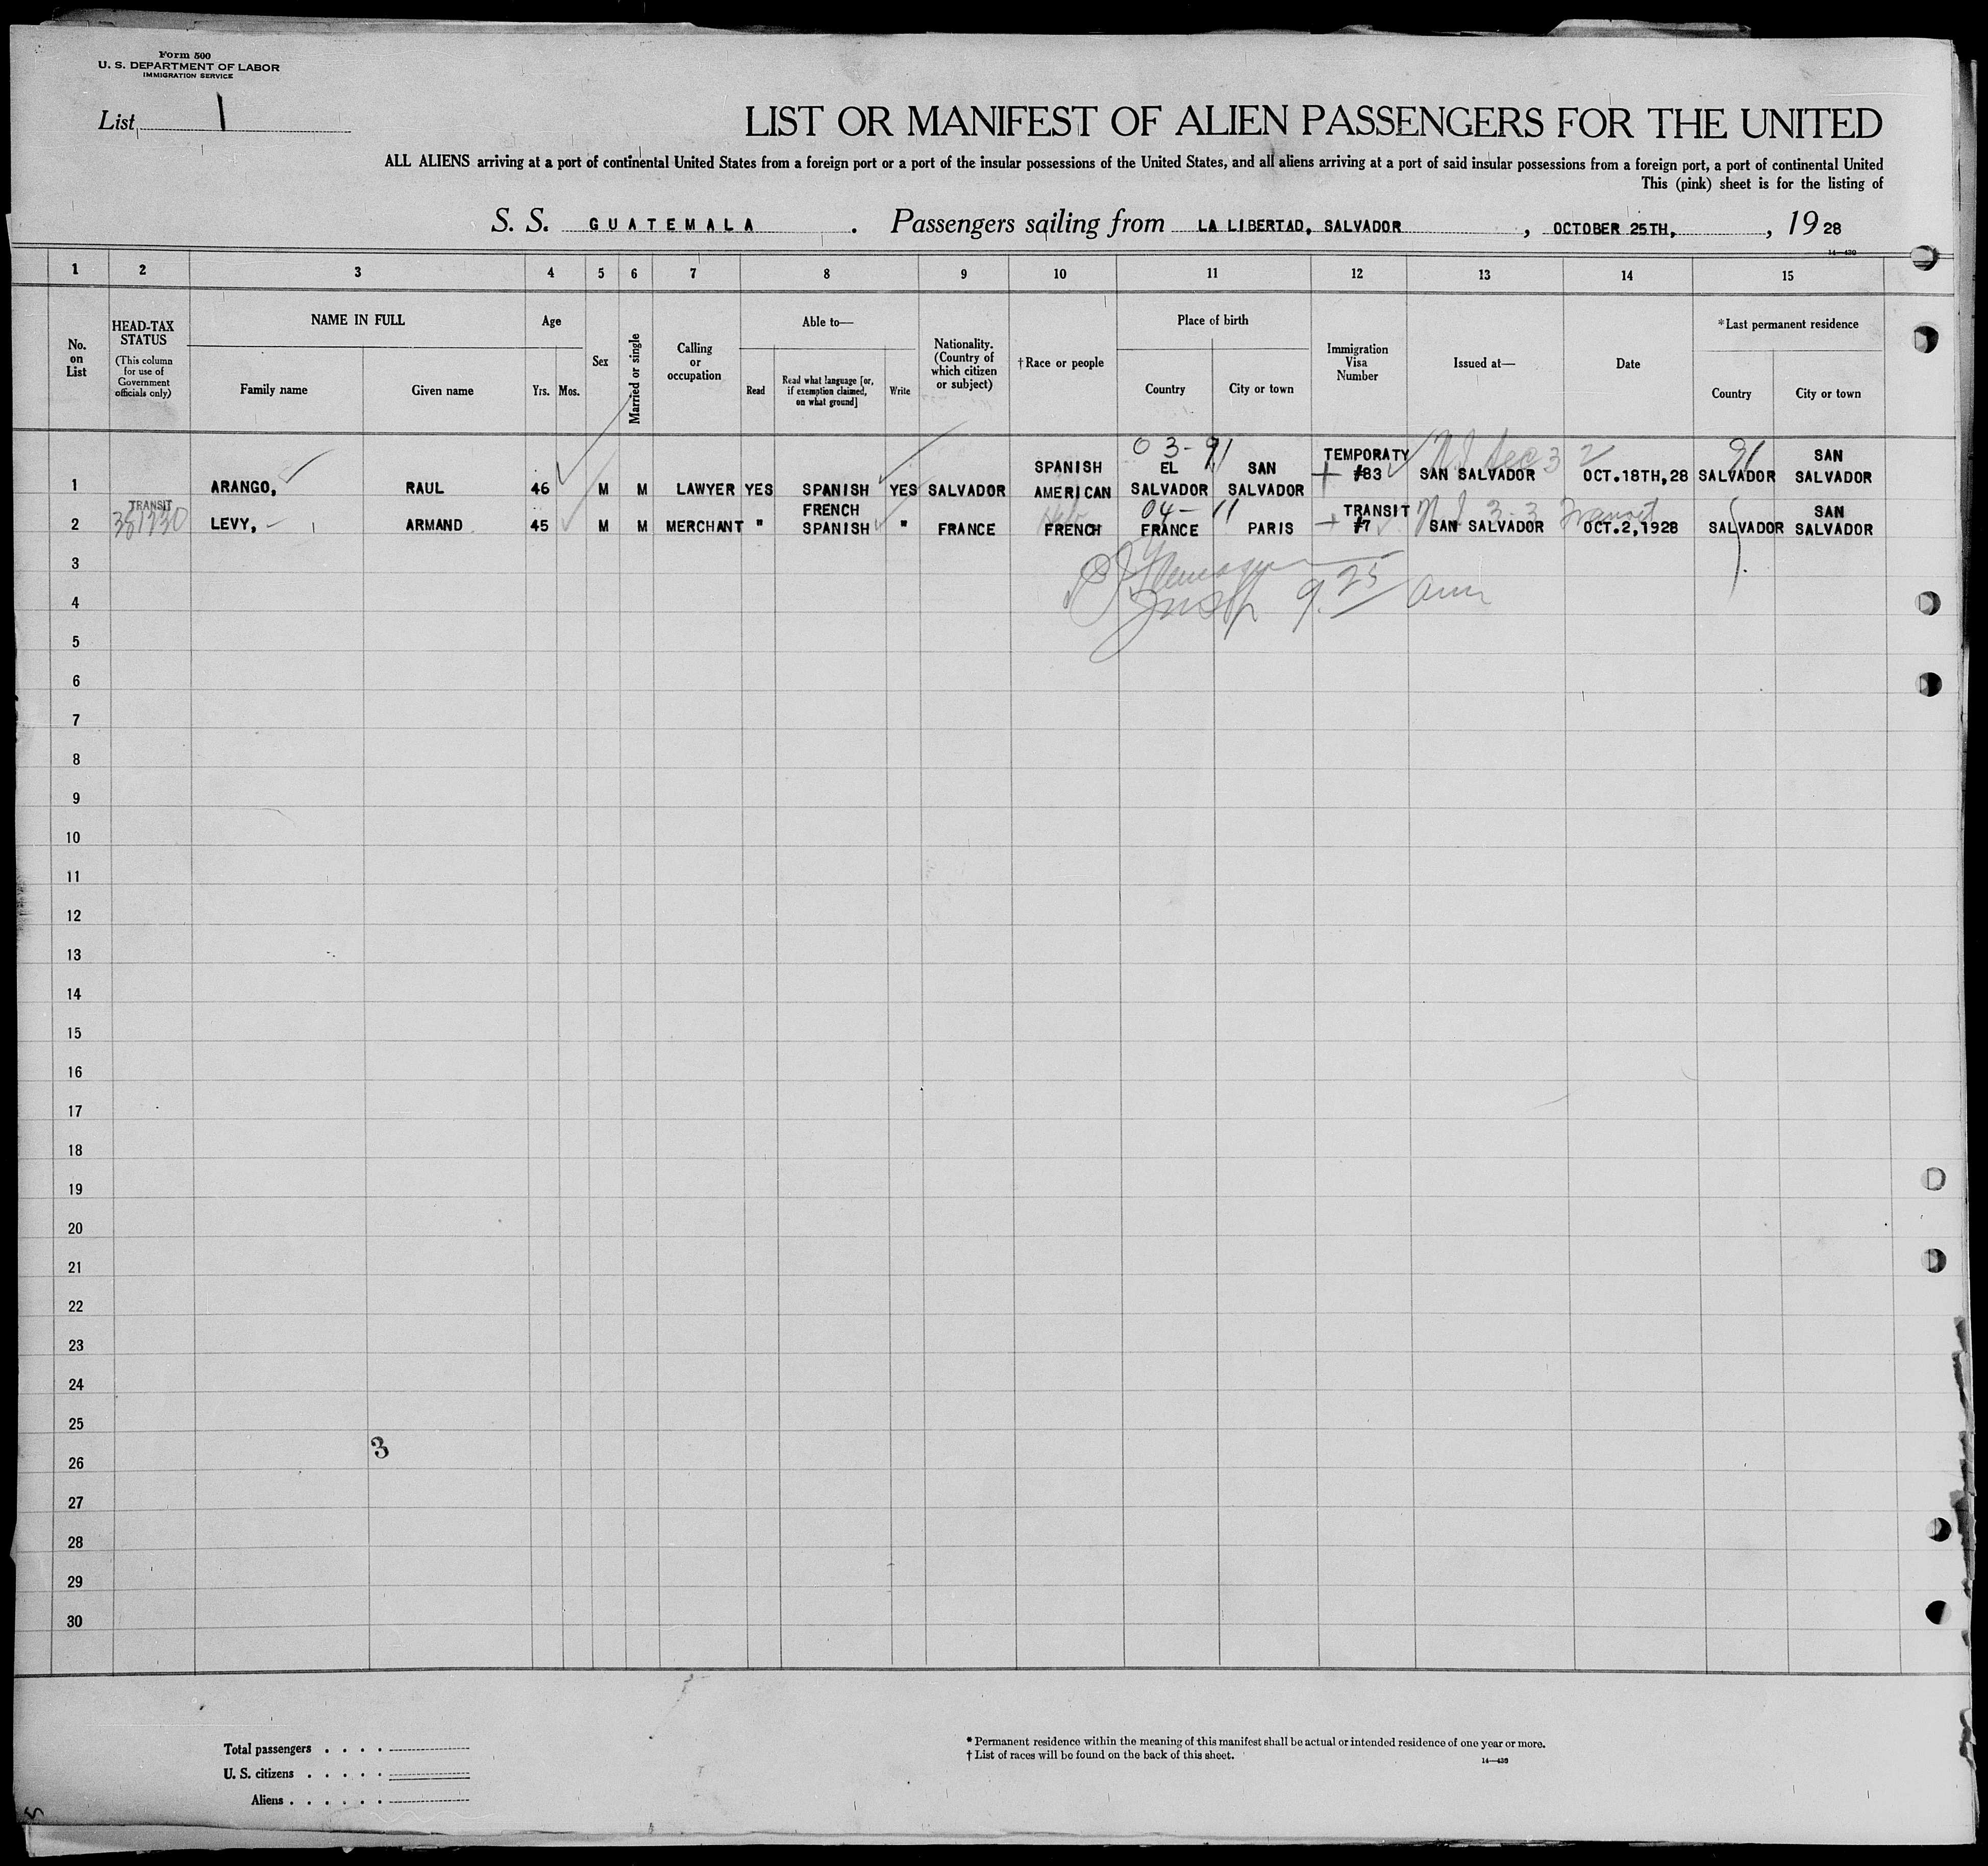 Form 500
U. S. DEPARTMENT OF LABOR
IMMIGRATION SERVICE
List 1
LIST OR MANIFEST OF ALIEN PASSENGERS FOR THE UNITED
ALL ALIENS arriving at a port of continental United States from a foreign port or a port of the insular possessions of the United States, and all aliens arriving at a port of said insular possessions from a foreign port, a port of continental United
This (pink) sheet is for the listing of
S. S. GUATEMALA . Passengers sailing from LA LIBERTAD, SALVADOR , OCTOBER 25TH, , 19 28
14—430
1 2 3 4 5 6 7 8 9 10 11 12 13 14 15
No. on List
HEAD-TAX STATUS
(This column for use of Government officials only)
NAME IN FULL
Family name
Given name
Age
Yrs. Mos.
Sex
Married or single
Calling or occupation
Able to—
Read
Read what language [or, if exemption claimed, on what ground]
Write
Nationality. (Country of which citizen or subject)
†Race or people
Place of birth
Country
City or town
Immigration Visa Number
Issued at—
Date
*Last permanent residence
Country
City or town
03-91
1 ARANGO, RAUL 46 M M LAWYER YES SPANISH YES SALVADOR SPANISH AMERICAN EL SALVADOR SAN SALVADOR TEMPORATY #83 SAN SALVADOR OCT.18TH,28 SALVADOR SAN SALVADOR
91
04-11
TRANSIT
381730
2 LEVY, ARMAND 45 M M MERCHANT " FRENCH SPANISH " FRANCE FRENCH FRANCE PARIS TRANSIT #7 SAN SALVADOR OCT.2,1928 SALVADOR SAN SALVADOR
3-3 Transit
Insp 9.25 am
3
4
5
6
7
8
9
10
11
12
13
14
15
16
17
18
19
20
21
22
23
24
25
3
26
27
28
29
30
Total passengers . . . .
U. S. citizens . . . . .
Aliens . . . . . .
* Permanent residence within the meaning of this manifest shall be actual or intended residence of one year or more.
† List of races will be found on the back of this sheet.
14—430